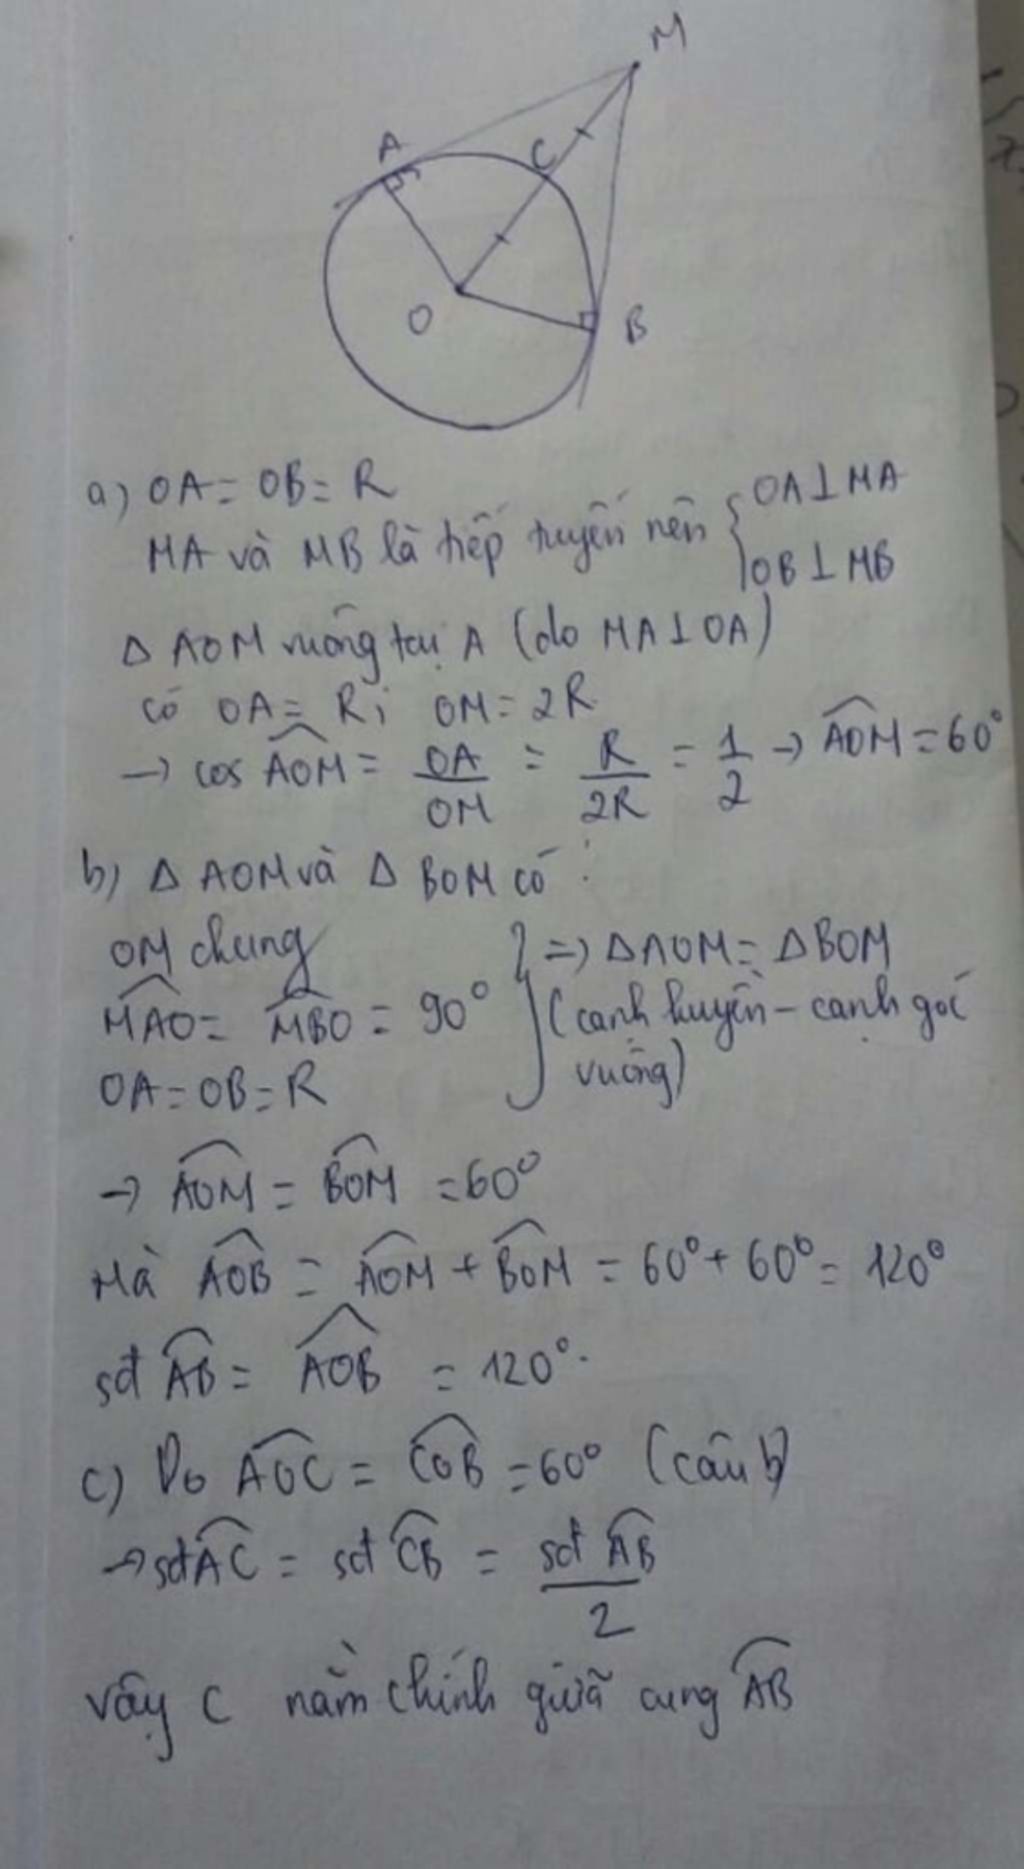 M
A
C
O
B
a) OA = OB = R
MA và MB là tiếp tuyến nên { OA ⊥ MA
OB ⊥ MB
Δ AOM vuông tại A (do MA ⊥ OA)
có OA = R; OM = 2R
→ cos \widehat{AOM} = \frac{OA}{OM} = \frac{R}{2R} = \frac{1}{2} → \widehat{AOM} = 60°
b) Δ AOM và Δ BOM có :
OM chung
\widehat{MAO} = \widehat{MBO} = 90°
OA = OB = R
} => ΔAOM = ΔBOM
(cạnh huyền - cạnh góc
vuông)
→ \widehat{AOM} = \widehat{BOM} = 60°
Mà \widehat{AOB} = \widehat{AOM} + \widehat{BOM} = 60° + 60° = 120°
sđ \widehat{AB} = \widehat{AOB} = 120°.
c) Do \widehat{AOC} = \widehat{COB} = 60° (câu b)
→ sđ \widehat{AC} = sđ \widehat{CB} = \frac{sđ \widehat{AB}}{2}
vậy C nằm chính giữa cung \widehat{AB}